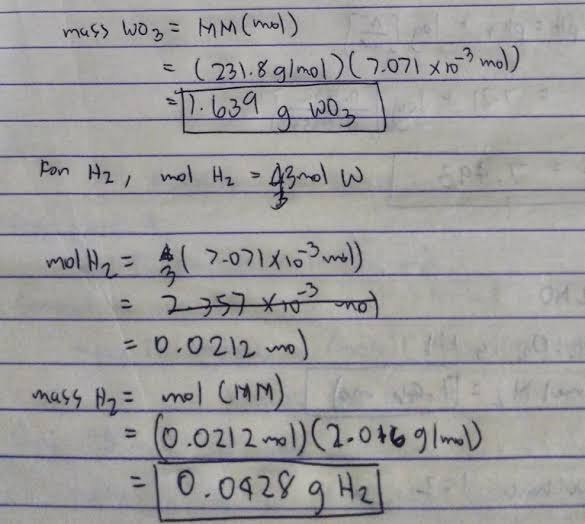 mass WO3 = MM(mol)
= (231.8 g/mol)(7.071 x10^-3 mol)
= 1.639 g WO3
For H2, mol H2 = 3 mol W
mol H2 = 3 (7.071 x10^-3 mol)
= 2.357 x10^-3 mol
= 0.0212 mol
mass H2 = mol (MM)
= (0.0212 mol)(2.016 g/mol)
= 0.0428 g H2